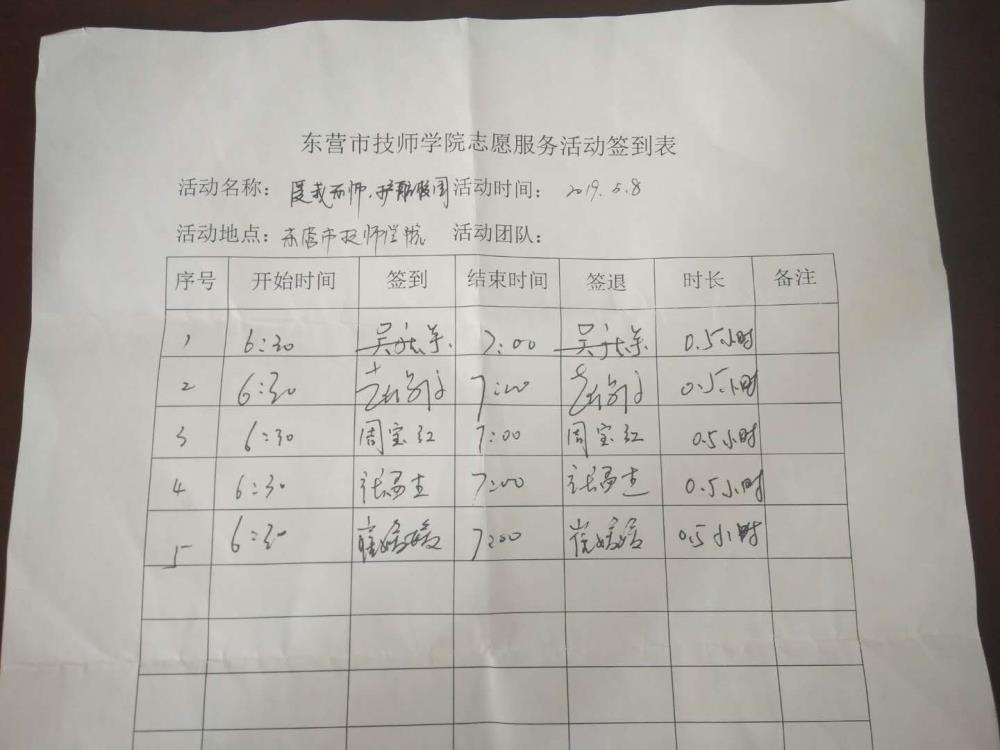 东营市技师学院志愿服务活动签到表
活动名称： 爱我系师，护航校园 活动时间： 2019.5.8
活动地点：东营市技师学院 活动团队：
序号 开始时间 签到 结束时间 签退 时长 备注
1 6:30 7:00 0.5小时
2 6:30 7:00 0.5小时
3 6:30 周宝红 7:00 周宝红 0.5小时
4 6:30 7:00 0.5小时
5 6:30 崔媛媛 7:00 崔媛媛 0.5小时